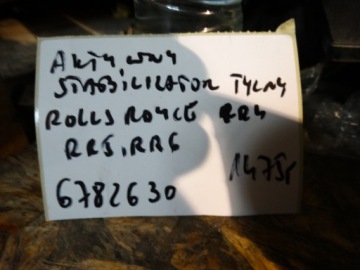 AKTYWNY
STABILIZATOR TYLNY
ROLLS ROYCE RR4
RR5, RR6
6782630 1475r